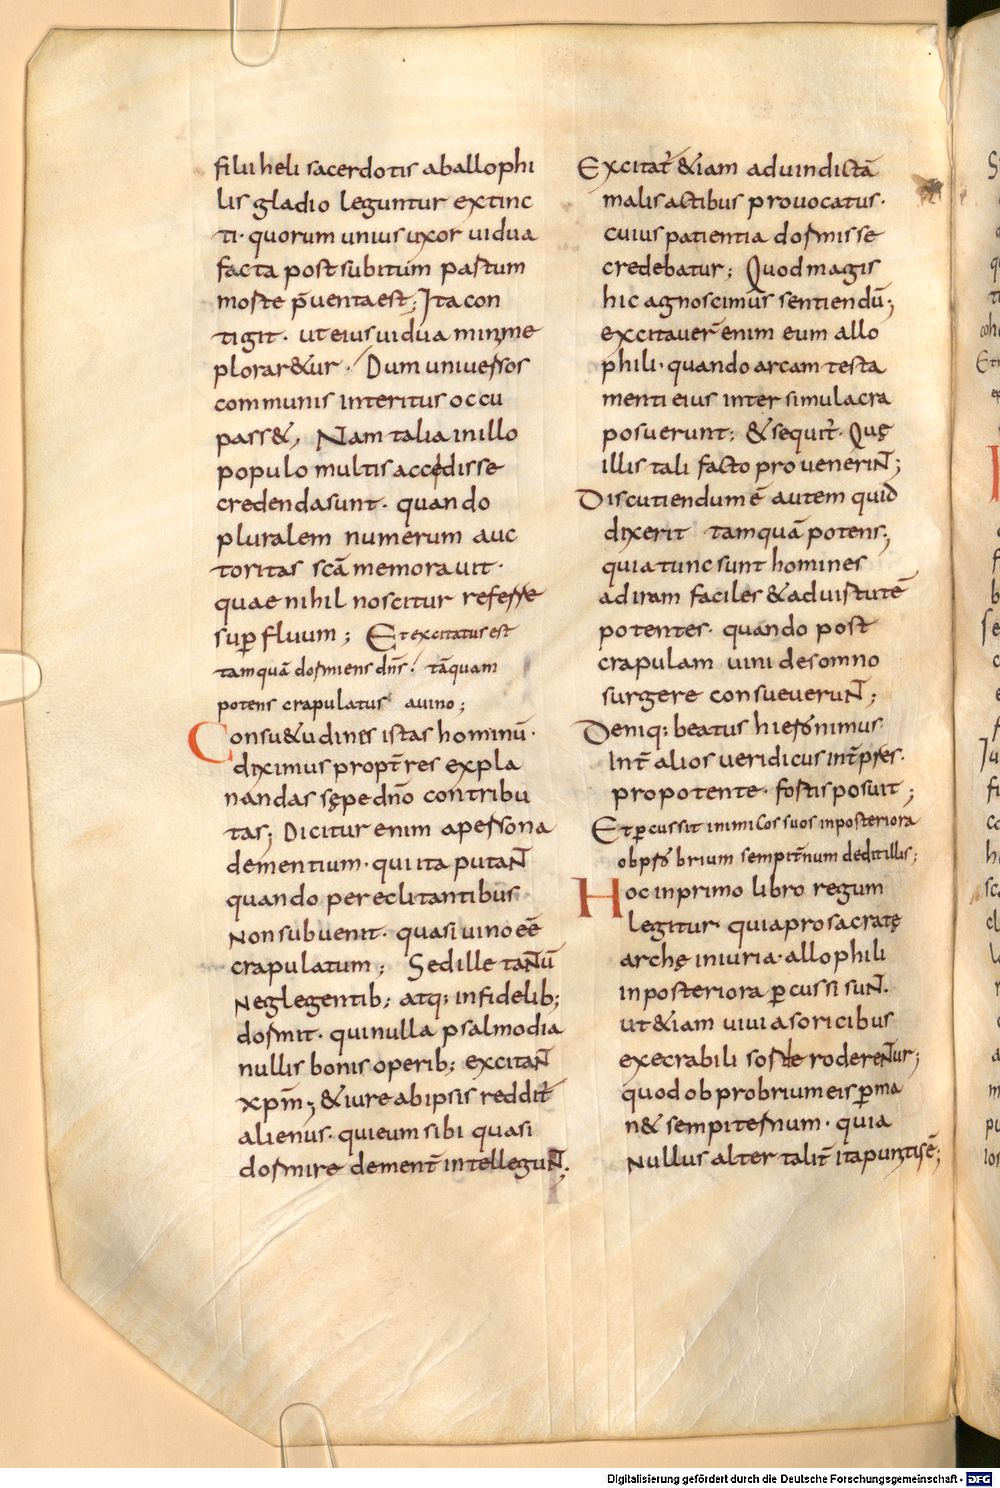 filii heli sacerdotis aballophi
lis gladio leguntur extinc
ti· quorum unius uxor uidua
facta post subitum pastum
morte p̄uenta est; Ita con
tigit· ut eius uidua minime
plorar&ur· Dum uniuersos
communis interitus occu
pass&, Nam talia inillo
populo multis accedisse
credenda sunt· quando
pluralem numerum auc
toritas scā memorauit·
quae nihil noscitur referre
suꝑfluum; Et excitatus est
tamquā dormiens dn̄s· tāquam
potens crapulatus auino;
Consu&udines istas hominū·
diximus propt̄ res expla
nandas sępe dn̄o contribu
tas; Dicitur enim apersona
dementium· qui ita putaNT
quando pereclitantibus
Non subuenit· quasi uino eē
crapulatum; Sed ille taNtū
Neglegentib; atq; infidelib;
dormit· qui nulla psalmodia
nullis bonis operib; excitaNT
xp̄m; & iure ab ipsis reddit̄
alienus· qui eum sibi quasi
dormire dement̄ intelleguNT;
Excitat̄ &iam ad uindictā
malis actibus prouocatus·
cuius patientia dormisse
credebatur; Quod magis
hic agnoscimus sentiendū;
excitauer̄ enim eum allo
phili· quando arcam testa
menti eius inter simulacra
posuerunt; & sequit̄· Quę
illis tali facto prouenerиNT;
Discutiendum ē autem quid
dixerit tamquā potens;
quia tunc sunt homines
ad iram faciles & aduirtutē
potentes· quando post
crapulam uini desomno
surgere consueueruNT;
Deniq; beatus hieronimus
Int̄ alios ueridicus int̄pres·
propotente· fortis posuit;
Et ꝑcussit inimicos suos inposteriora
obprobrium sempit̄num dedit illis;
Hoc inprimo libro regum
legitur quia pro sacratę
archę iniuria· allophili
inposteriora ꝑcussi suNT·
ut &iam uiui asoricibus
execrabili sorte rodereNTur;
quod obprobrium eis ꝑma
n& sempiternum· quia
Nullus alter talit̄ ita punitus ē;
Digitalisierung gefördert durch die Deutsche Forschungsgemeinschaft - DFG